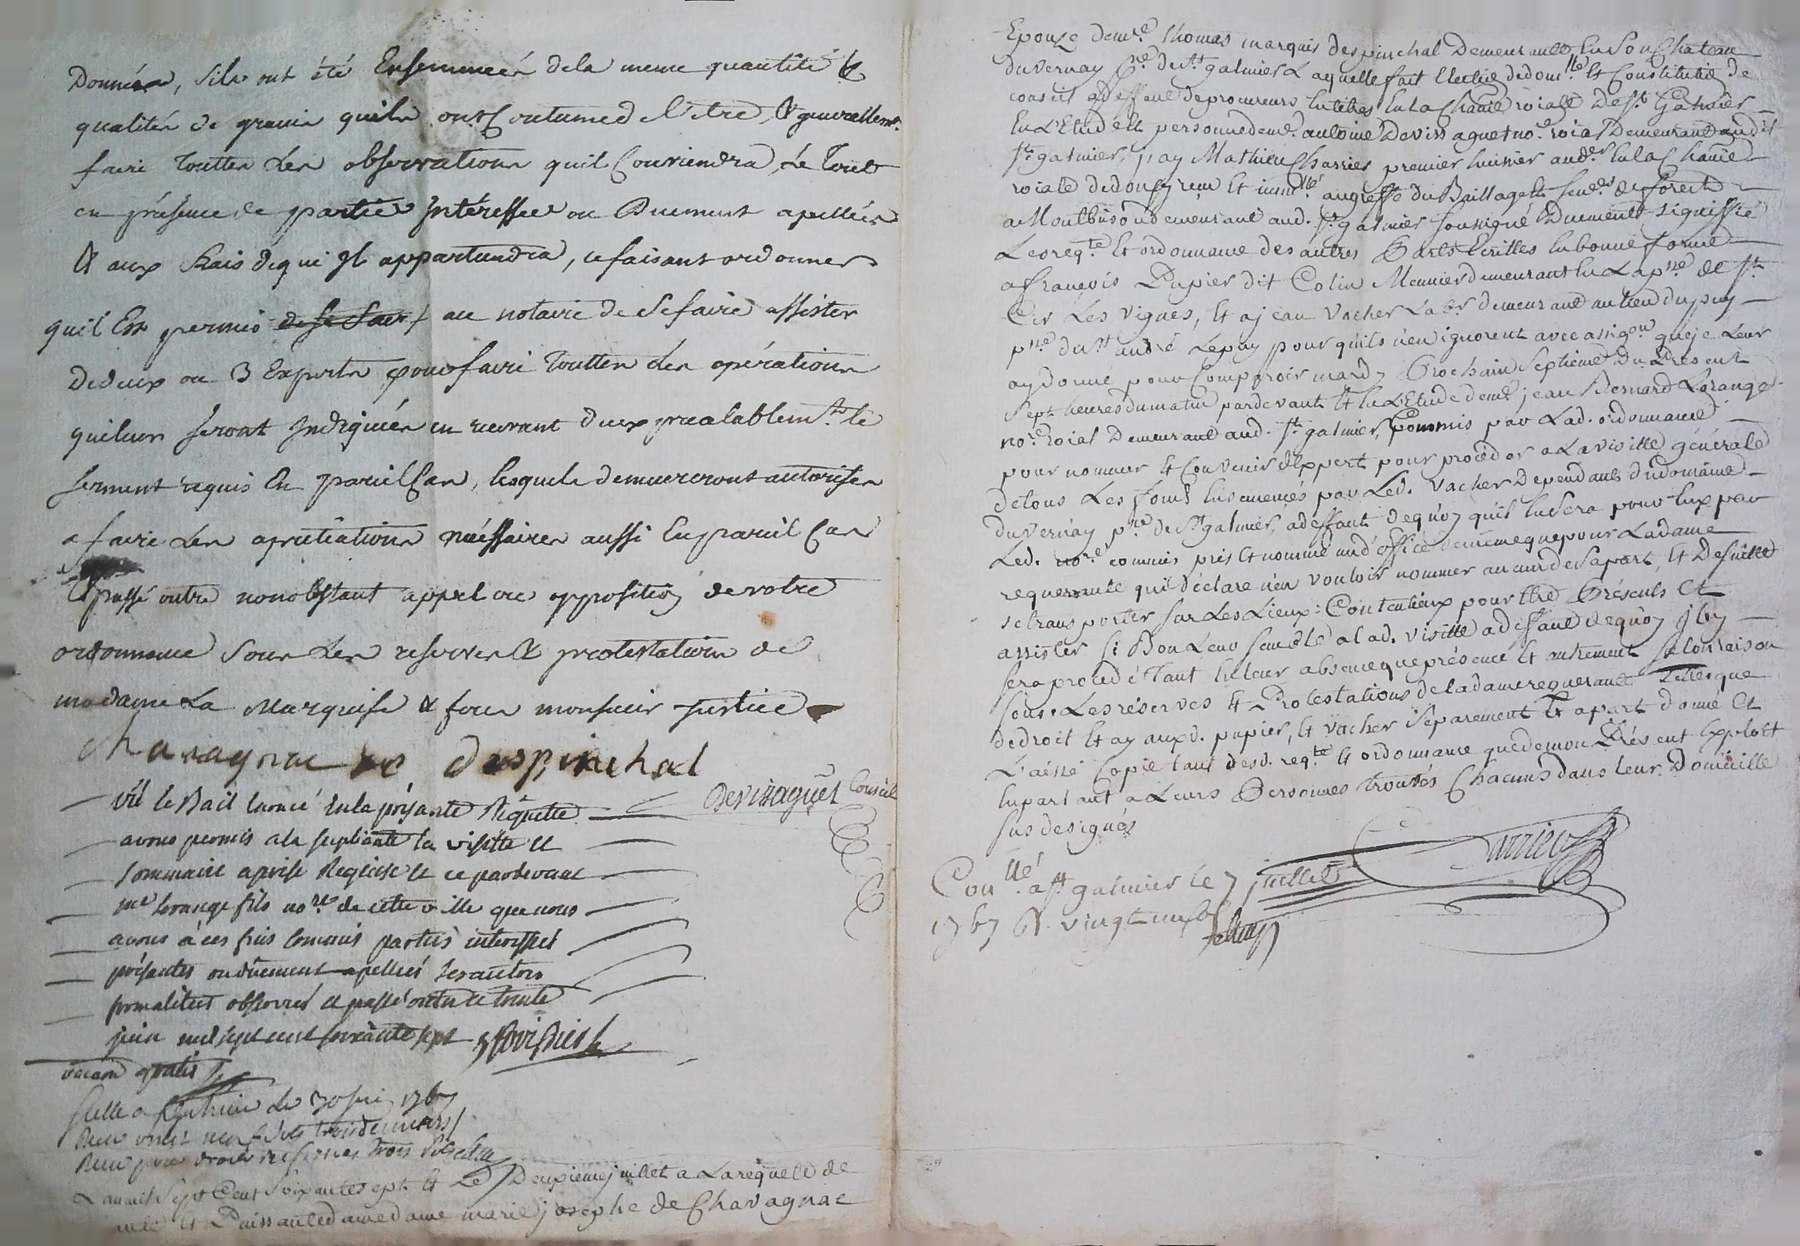 données, s'ils ont été Ensemencés de la meme quantité &
qualités de grains quils ont Coutume d'Etre, & generallemt
faire Touttes les observations quil Conviendra, Le Tout
en présence de parties Intéressées ou Duement apellées
& aux frais de qui Il appartiendra, ce faisant ordonner
quil Est permis de se faire au notaire de se faire assister
de deux ou 3 Experts pour faire Touttes les opérations
qui leur seront Indiquées en recevant d'eux prealablemt le
serment requis En pareil Cas, lesquels demeureront autorisés
a faire les apretiations nécéssaires aussi En pareil Cas
& passé outre nonobstant appel ou opposition de votre
ordonnance sous les reserves & protestations de
madame La Marquise & feres monsieur justice
Chavagnac despinchal
vû le Bail Enoncé En la présante Requette Devissaguet Conseil
avons permis a la supliante la visitte et
sommaire aprise Requise et ce pardevant
me Lorange fils nore de cette ville que nous
avons à ces fins Commis parties intéréssées
présantes ou dûement apellées les autres
formalités observées et passé outre ce trente
juin mil sept cent soixante sept
vacaon gratis
scellé a St Galmier le 30 juin 1767
Reçu onze neuf sols trois deniers
Reçu pour droits reservés trois sols
L'an mil Sept Cent Soixante sept & Le Deuxieme juillet a La requette de
& Puissante dame dame marie josephe de Chavagnac
Epouze de mre Thomas marquis despinchal Demeurante En Son Chateau
du vernay pse de St galmier Laquelle fait Election de domlle Et Constitution de
conseil a deffaut de procureurs En titres En la Chanie roialle De St Galmier
En L'Etude Et personne de me antoine Devissaguet nore roial Demeurant aud.
St galmier, j'ay Mathieu Charrier premier huissier aud. En la Chanie
roialle de donzy reçu Et immlé au greffe du Baillage Et Senes de forest
a Montbrison demeurant aud. St galmier Sousigné Duement signiffié
Les reqte Et ordonnance des autres Parts Ecrittes En bonne forme
a françois Papier dit Colin Meunier demeurant En La pse de St
Cir Les vignes, Et a jean vacher Labr demeurant au lieu du puy
pse de St andré Le puy pour qu'ils n'en ignorent avec assigon que je Leur
ay donné pour Comparoir mardy Prochain Septieme Du Présent
Sept heures du matin pardevant Et En L'Etude de me jean Bernard Lorange
nore roial Demeurant aud. St galmier, Commis par Lad. ordonnance
pour nommer Et Convenir d'Expert pour procéder a La visitte générale
de tous Les fonds Ensemencés par Led. vacher Dependants du domaine
du vernay pse de St galmier, a deffaut de quoy qu'il En Sera pour Eux par
Led. nore commis pris Et nommé un d'office de meme que pour La dame
requerante qui déclare n'en vouloir nommer aucun de sa part, Et De suitte
se transporter sur Les Lieux Contentieux pour Etre Présents Et
assister Si Bon Leur Semble a lad. visitte a deffaut de quoy il y
Sera procédé Tant En leur absence que présence Et autrement selon raison
sous Les réserves Et Protestations de la dame requerante Telles que
de droit Et ay auxd. papier, Et vacher séparement Et a part donné Et
Laissé Copie tant desd. reqte Et ordonnance que de mon Présent Exploit
En parlant a Leurs Personnes trouvés Chacuns dans leur Domicille
sus designés
Charrier
Conllé a St galmier le 7 juillet
1767 R. vingt neuf s.